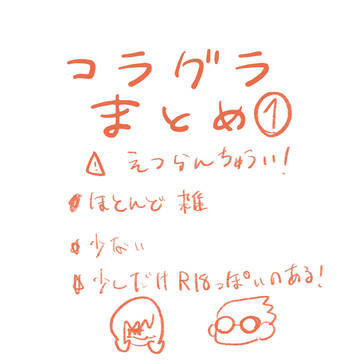 コラグラ
まとめ①
⚠ えつらんちゅうい!
ほとんど 雑
少ない
少しだけR18っぽいのある!